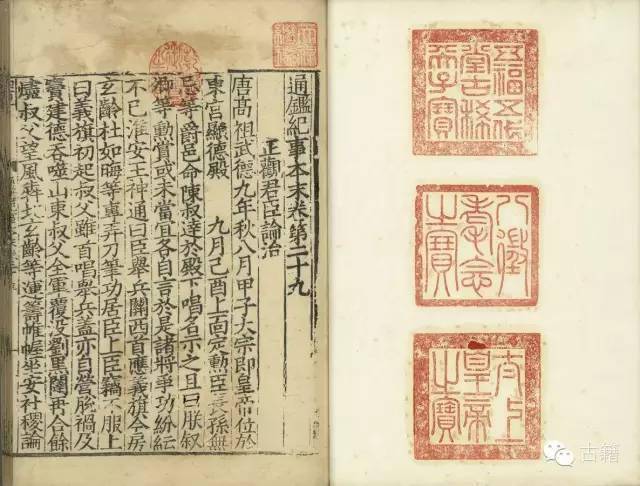 通鑑紀事本末卷第二十九
正觀君臣論治
唐高祖武德九年秋八月甲子太宗即皇帝位於
東宮顯德殿　九月己酉上面定勳臣長孫無
忌等爵邑命陳叔達於殿下唱名示之且曰朕叙
卿等勳賞或未當宜各自言於是諸將爭功紛紜
不已淮安王神通曰臣舉兵關西首應義旗今房
玄齡杜如晦等專弄刀筆功居臣上臣竊不服上
曰義旗初起叔父雖首唱舉兵蓋亦自營脫禍及
竇建德吞噬山東叔父全軍覆沒劉黑闥再合餘
燼叔父望風奔北玄齡等運籌帷幄坐安社稷論
五福五代堂古稀天子寶
八徵耄念之寶
太上皇帝之寶
古籍